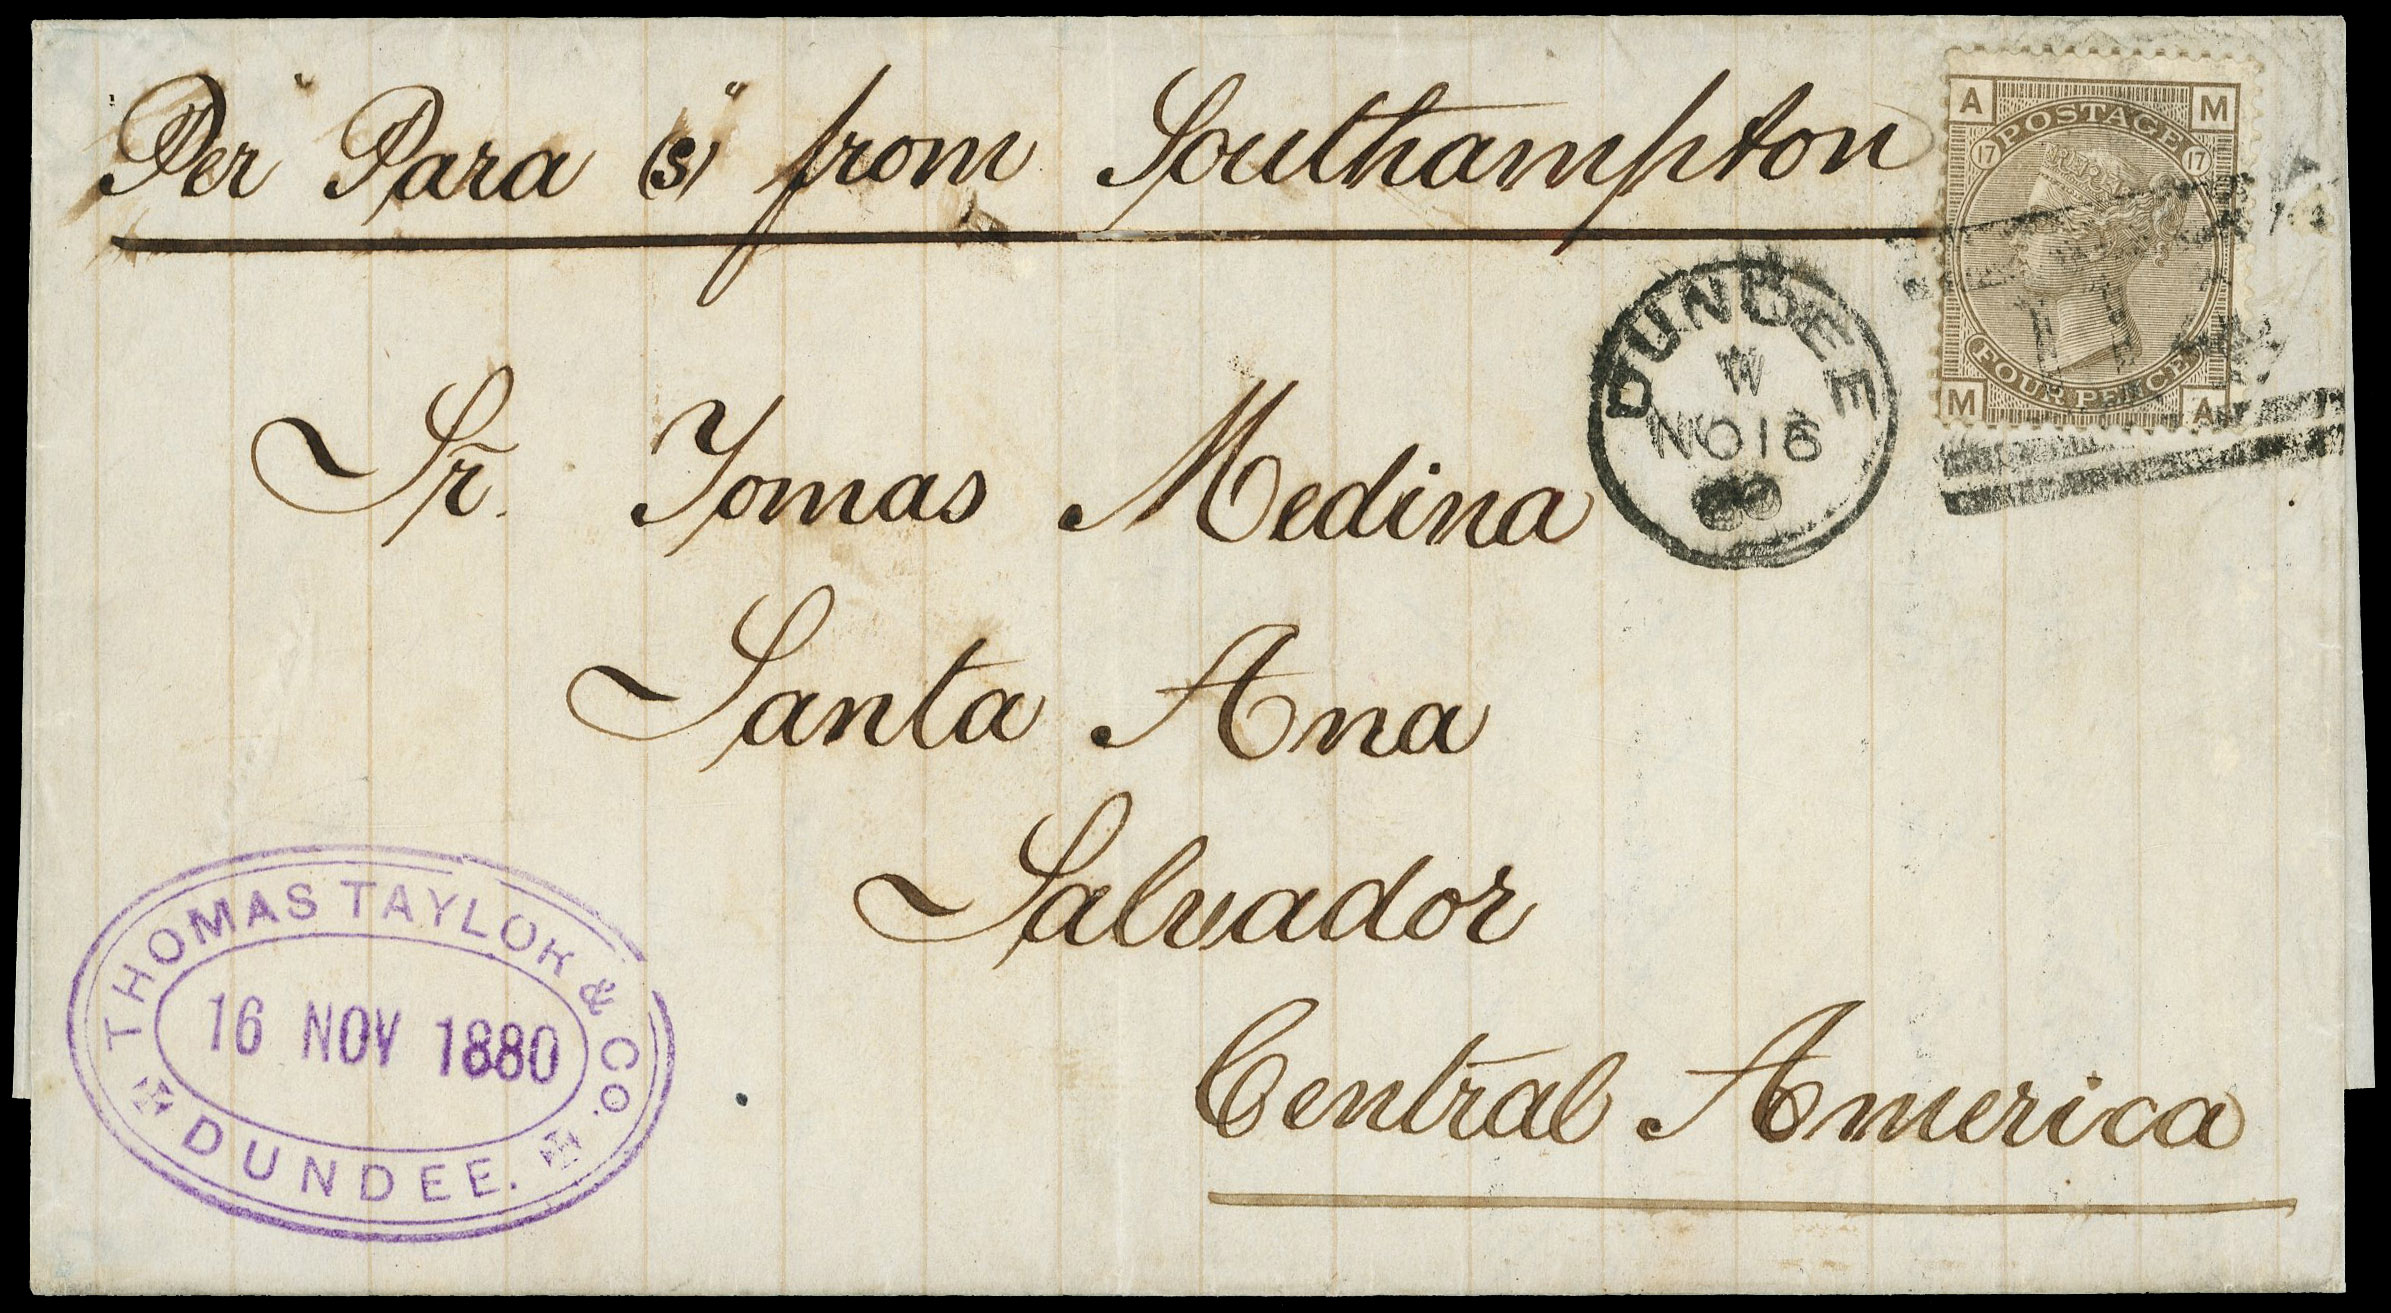 Per "Para (s)" from Southampton
A M
17 POSTAGE 17
FOUR PENCE
M A
DUNDEE
W
NO 16
80
Sr. Tomas Medina
Santa Ana
Salvador
Central America
THOMAS TAYLOR & CO.
16 NOV 1880
DUNDEE.